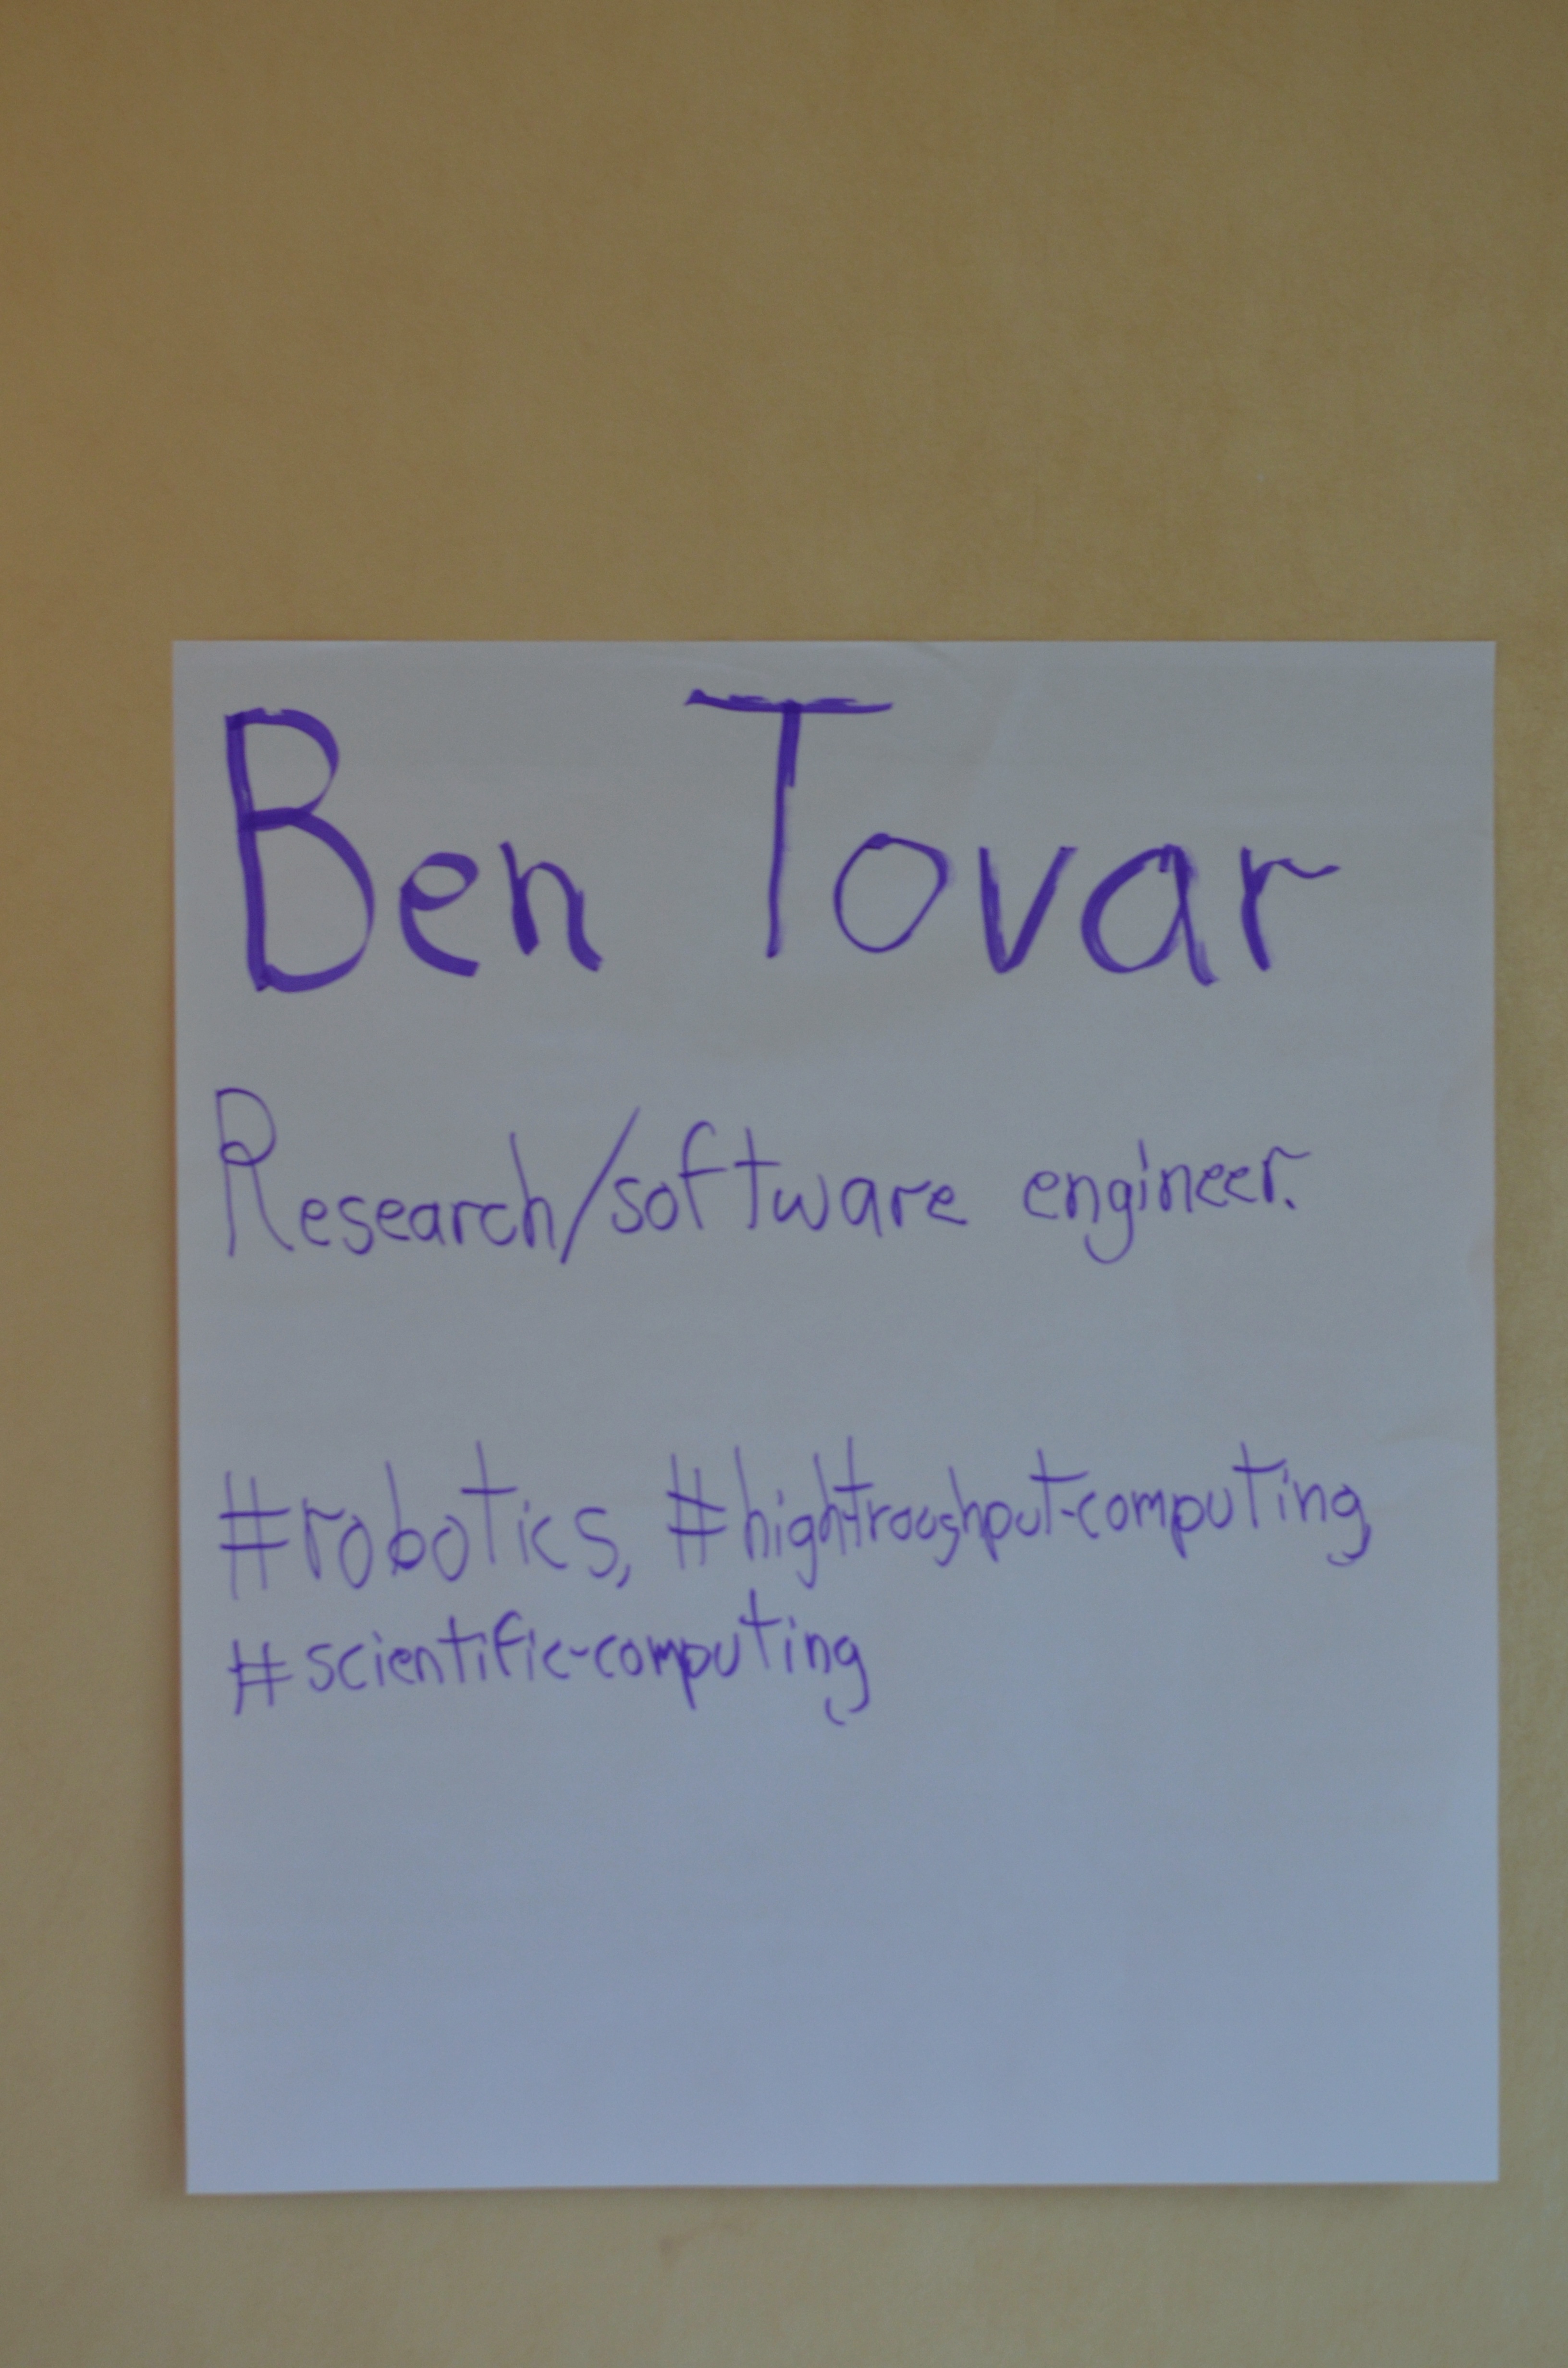 Ben Tovar
Research/software engineer.
#robotics, #high-troughput-computing
#scientific-computing